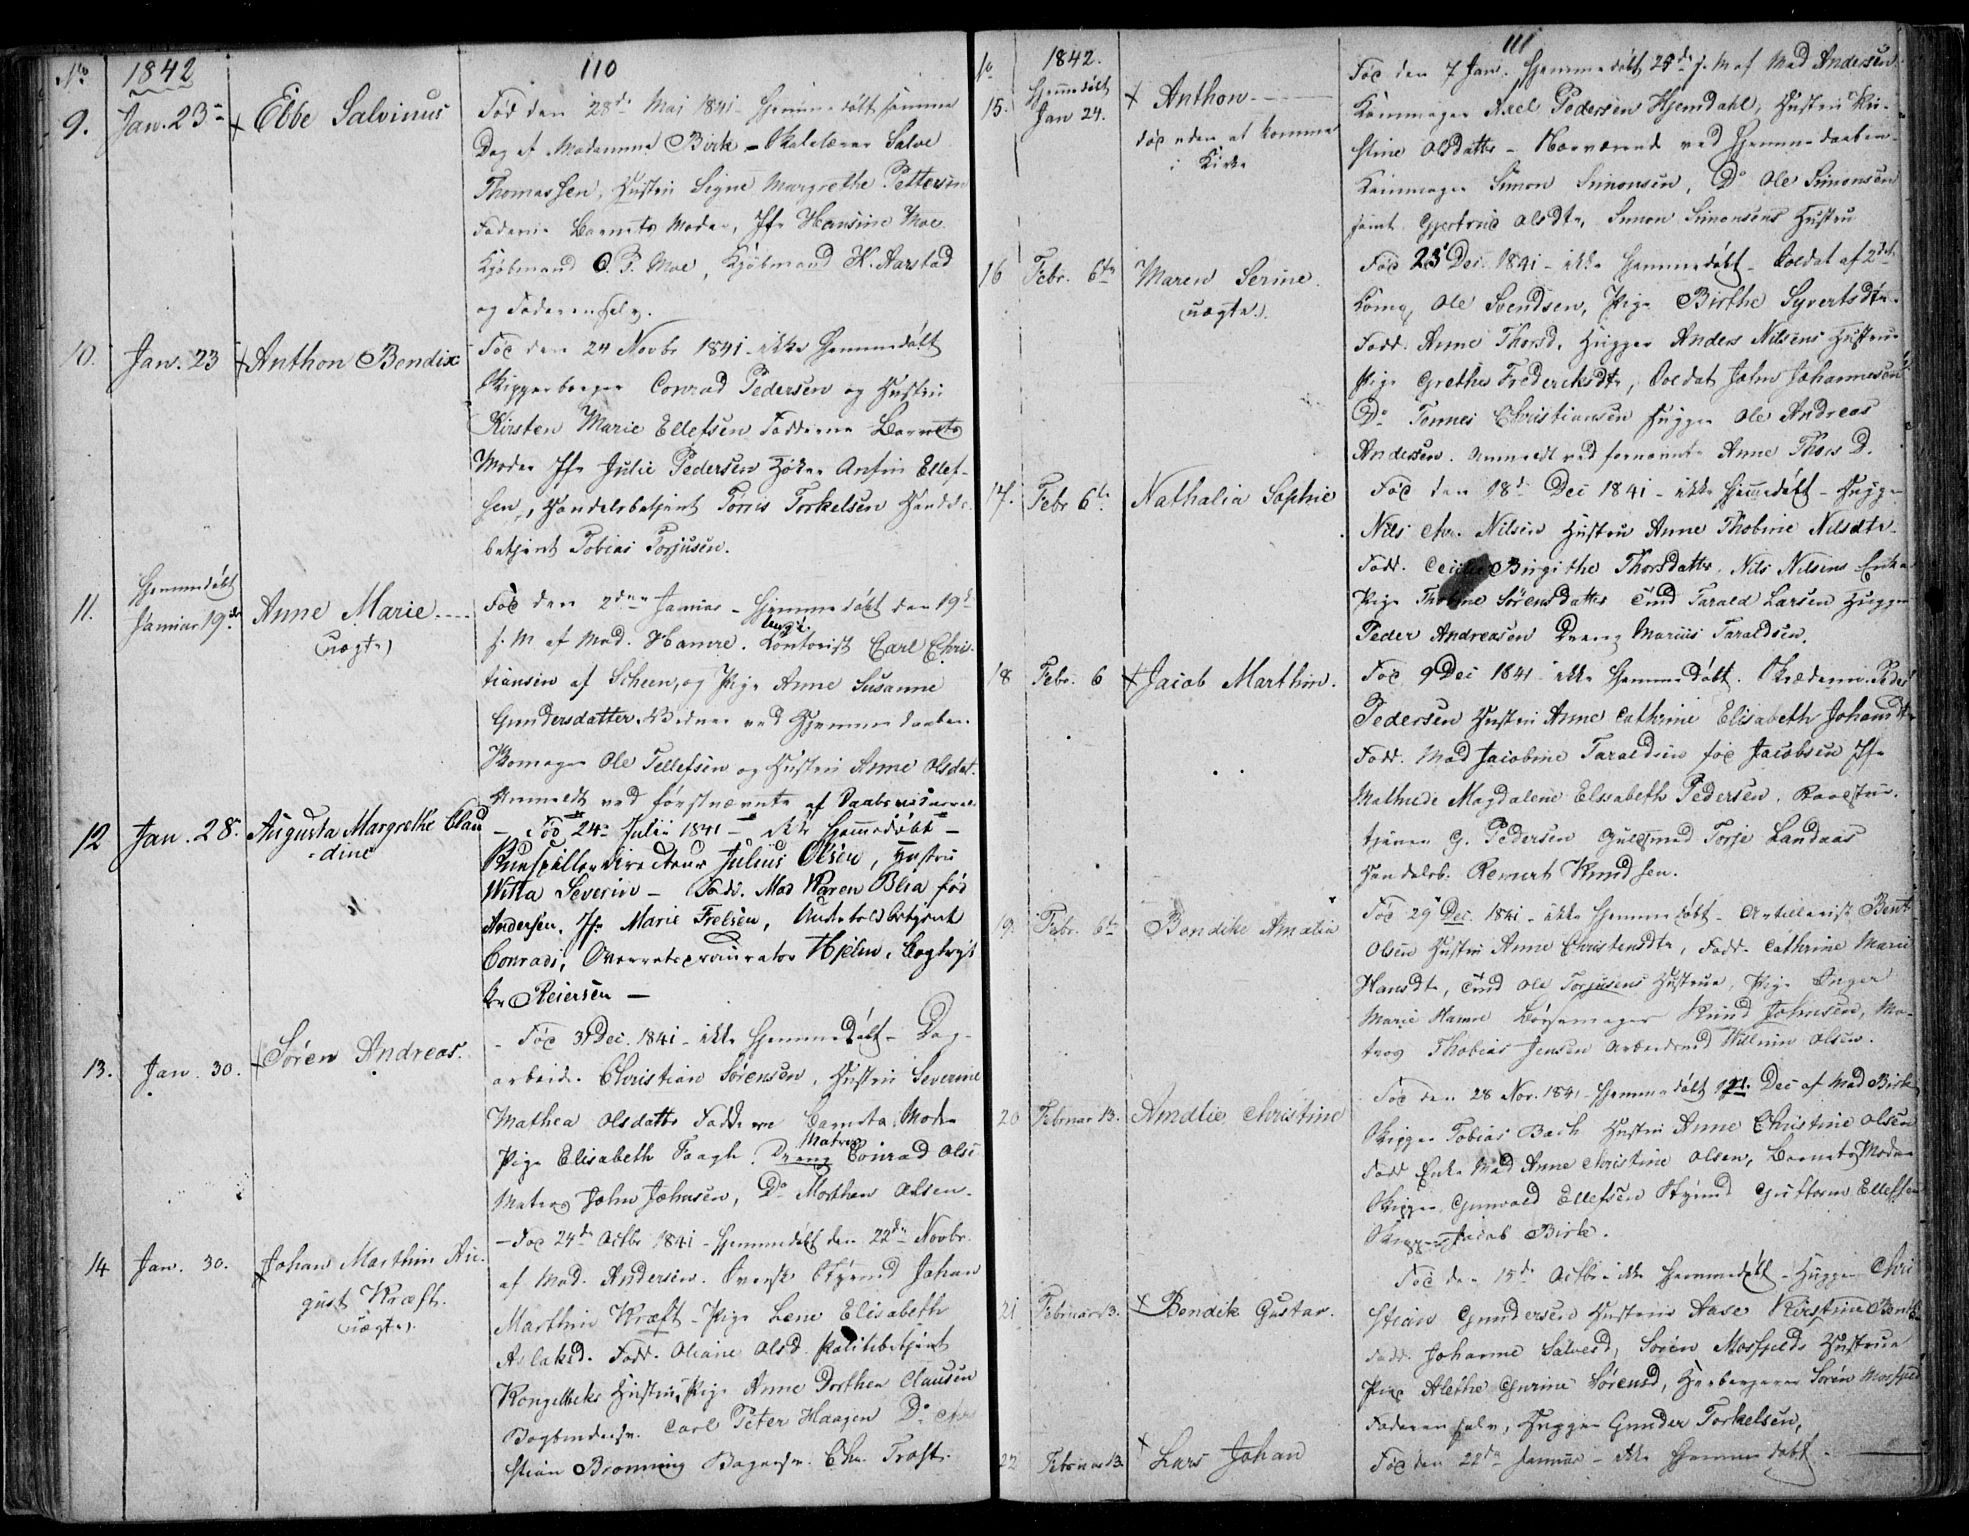 No 1842 110
9. Jan. 23 + Ebbe Salvinus
Fød den 28de Mai 1841 hjemmedøbt samme
Dag af Madamme Birk - Skolelærer Salve
Thomassen, Hustru Signe Margrethe Pettersen
Fadderne Barnets Moder, Jfr Hansine Moe
Kjøbmand O. P. Moe, Kjøbmand K. Aarstad
og Faderen selv.
10. Jan. 23 + Anthon Bendix
Fød den 24 Novbr 1841 - ikke hjemmedøbt
Skipperborger Conrad Pedersen og Hustru
Kirsten Marie Ellefsen Fadderne Barnets
Moder Jfr Julie Pedersen Høker Anfin Ellef-
sen, Handelsbetjent Tørris Torkelsen Handels-
betjent Tobias Torjusen.
11. Hjemmedøbt
Januar 19de Anne Marie
(uægte)
Fød den 2den Januar - hjemmedøbt den 19de
s. M af Mad. Hamre. Ungk. Kontorist Carl Chris-
tiansen af Scheen, og Pige Anne Susanne
Gundersdatter. Vidner ved Hjemmedaaben
Skomager Ole Tellefsen og Hustru Anne Olsdat.
Anmeldt ved førstnævnte af Daabsvidnerne
12 Jan. 28. Augusta Margrethe Clau
dine
- Fød 24 Julii 1841 - ikke hjemmedøbt -
Skuespillerdirecteur Julius Olsen, Hustru
Witta Severin - Fadd. Mad Karen Blia fød
Andersen, Jfr Marie Frelsen,
Conradi, Overretsprocurator Hjelm, Bogtryk
ker Reiersen -
13. Jan. 30. Søren Andreas.
- Fød 31 Dec. 1841 - ikke hjemmedøbt - Dag-
arbeider Christian Sørensen, Hustru Severine
Mathea Olsdatter Fadderne Barnets Moder
Pige Elisabeth Faagh. Dreng Matros Conrad Olsen
Matros John Johnsen, Do Morthen Olsen.
14 Jan. 30. Johan Marthin Au-
gust Kræft.
(uægte)
- Fød 24de Octbr 1841 - hjemmedøbt den 22de Novbr.
af Mad. Andersen. Svensk Styrmd Johan
Marthin Kræft - Pige Lene Elisabeth
Aslaksd. Fadd. Oliane Olsd. Politibetjent
Kongelbeks Hustru, Pige Anne Dorthea Clausen
Bogbindersv. Carl Peter Haagen Do Chr
stian Bronning Bagersv. Chr. Trost.
No 1842. 111
15. Hjemmedøbt
Jan 24. + Anthon
død uden at komme
i Kirke
Fød den 7 Jan. hjemmedøbt 24de s. M af Mad Andersen
Axel Pedersen Hjemdahl, Hustru Kri-
stine Olsdatter - Nærværende ved Hjemmedaaben
Simon Simonsen, Do Ole Simonsen
samt Gjertrud Olsdtr, Simon Simonsens Hustru
16 Febr. 6te Maren Serine.
(uægte.)
Fød 23 Dec. 1841 - ikke hjemmedøbt - Soldat af 2det
Komp, Ole Svendsen, Pige Birthe Syvertsdtr
Fadd. Anne Thorsd, Hugger Anders Nilsens Hustru
Pige Grethe Frederiksdtr, Soldat John Johannesen
Do Tønnes Christiansen Hugger Ole Andreas
Andersen. Anmeldt ved fornævnte Anne Thors D.
17. Febr 6te Nathalia Sophie
Fød den 18de Dec 1841 - ikke hjemmedøbt - Hugger
Nils Chr. Nilsen Hustru Anne Thobine Nilsdtr
Fadd. Cecilie Birgithe Thorsdatter, Nils Nilsens Enke
Pige Thobine Sørensdatter Tarald Larsen Hugger
Peder Andreasen Dreng Marius Taraldsen.
18 Febr. 6 + Jacob Marthin.
Fød 9 Dec 1841 ikke hjemmedøbt. Skrædderm. Peder
Pedersen Hustru Anne Cathrine Elisabeth Johansdtr
Fadd. Mad Jacobine Taraldsen fød Jacobsen Jfr
Mathilde Magdalene Elisabeth Pedersen,
tjener G. Pedersen Guldsmed Torje Landaas
Handelsb. Reinert Knudsen.
19. Febr. 6te Bendike Amalia
Fød 29 Dec. 1841 - ikke hjemmedøbt - Artillerist Bent
Olsen Hustru Anne Christensdtr, Fadd. Cathrine Marie
Hansdtr, Ole Torjusens Hustru, Pige Inger
Marie Hamre Børsemager Knud Johnsen, Ma-
tros Thobias Jensen Arbeidsmd Willum Olsen.
20 Februar 13. Amalie Christine
Fød den 28 Nov. 1841 - hjemmedøbt 12 Dec af Mad Birk
Skipper Tobias Bach Hustru Anne Christine Olsen
Fadd Enke Mad Anne Christine Olsen, Barnets Moder
Skipper Gunvald Ellefsen Styrmd Guttorm Ellefsen
Skipper Jacob Birk.
21 Februar 13. + Bendik Gustav.
Fød den 15de Octbr ikke hjemmedøbt - Hugger Chri
stian Gundersen Hustru Aase Kirstine Bents
Fadd. Johanne Salvesd, Søren Mosfjelds Hustru
Pige Alethe Gurine Sørensd, Søren Mosfjed
Faderen selv, Hugger Gunder Torkelsen,
22 Februar 13. + Lars Johan
Fød den 22de Januar - ikke hjemmedøbt -